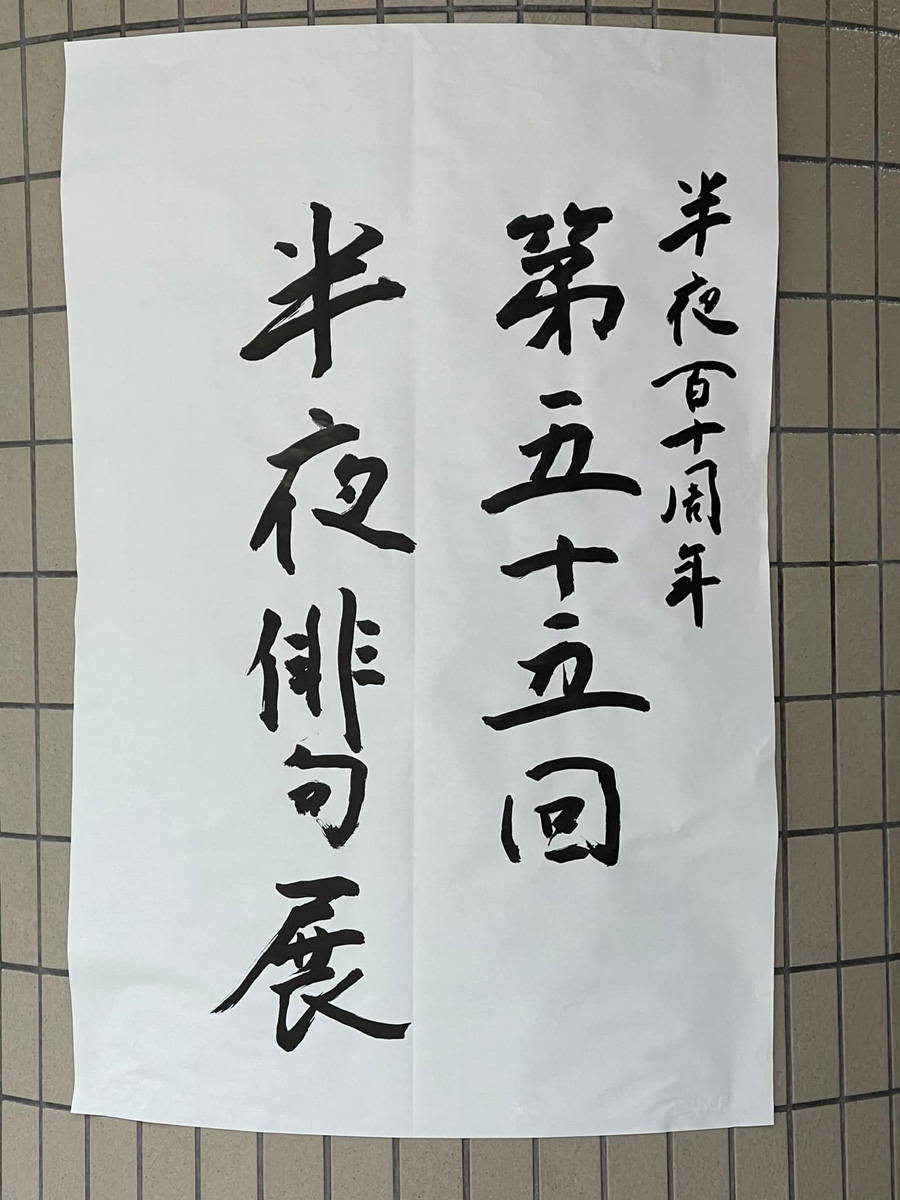 半夜百十周年
第五十五回
半夜俳句展